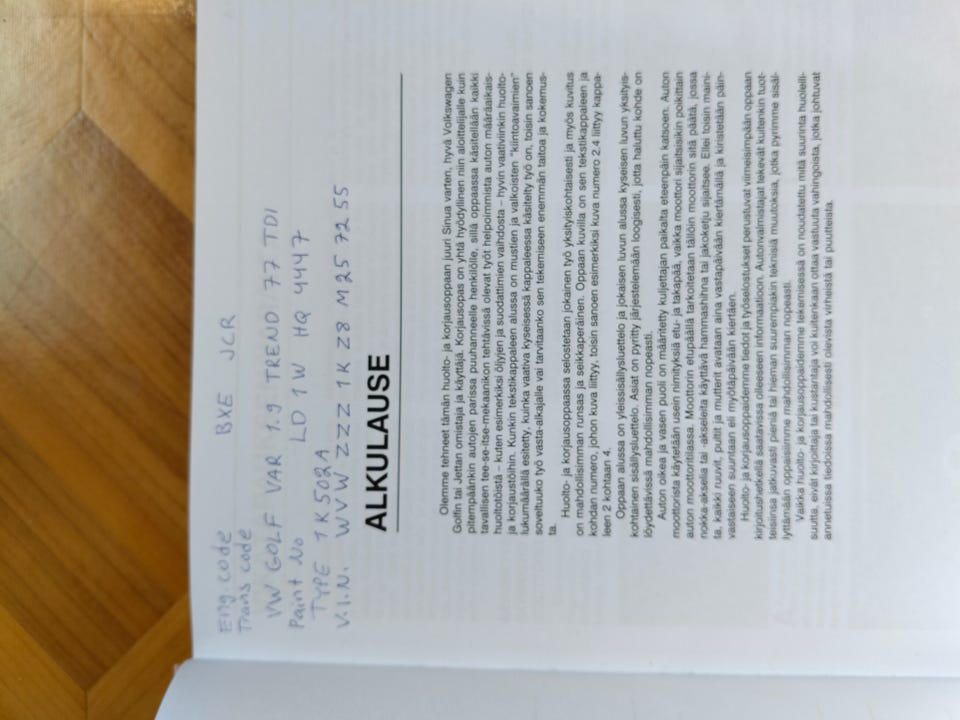 Eng.code BXE JCR
Trans code
VW GOLF VAR 1.9 TREND 77 TDI
Paint No LD 1W HQ 4447
TYPE 1K502A
V.I.N. WVW ZZZ 1K Z8 M257255
ALKULAUSE
Olemme tehneet tämän huolto- ja korjausoppaan juuri Sinua varten, hyvä Volkswagen
Golfin tai Jettan omistaja ja käyttäjä. Korjausopas on yhtä hyödyllinen niin aloittelijalle kuin
pitempäänkin autojen parissa puuhanneelle henkilölle, sillä oppaassa käsitellään kaikki
tavallisen tee-se-itse-mekaanikon tehtävissä olevat työt helpoimmista auton määräaikais-
huoltotöistä – kuten esimerkiksi öljyjen ja suodattimien vaihdosta – hyvin vaativiinkin huolto-
ja korjaustöihin. Kunkin tekstikappaleen alussa on mustien ja valkoisten "kiintoavaimien"
lukumäärällä esitetty, kuinka vaativa kyseisessä kappaleessa käsitelty työ on, toisin sanoen
soveltuuko työ vasta-alkajalle vai tarvitaanko sen tekemiseen enemmän taitoa ja kokemus-
ta.
Huolto- ja korjausoppaassa selostetaan jokainen työ yksityiskohtaisesti ja myös kuvitus
on mahdollisimman runsas ja seikkaperäinen. Oppaan kuvilla on sen tekstikappaleen ja
kohdan numero, johon kuva liittyy, toisin sanoen esimerkiksi kuva numero 2.4 liittyy kappa-
leen 2 kohtaan 4.
Oppaan alussa on yleissisällysluettelo ja jokaisen luvun alussa kyseisen luvun yksityis-
kohtainen sisällysluettelo. Asiat on pyritty järjestelemään loogisesti, jotta haluttu kohde on
löydettävissä mahdollisimman nopeasti.
Auton oikea ja vasen puoli on määritetty kuljettajan paikalta eteenpäin katsoen. Auton
moottorista käytetään usein nimityksiä etu- ja takapää, vaikka moottori sijaitsisikin poikittain
auton moottoritilassa. Moottorin etupäällä tarkoitetaan tällöin moottorin sitä päätä, jossa
nokka-akselia tai -akseleita käyttävä hammashihna tai jakoketju sijaitsee. Ellei toisin maini-
ta, kaikki ruuvit, pultit ja mutterit avataan aina vastapäivään kiertämällä ja kiristetään päin-
vastaiseen suuntaan eli myötäpäivään kiertäen.
Huolto- ja korjausoppaidemme tiedot ja työselostukset perustuvat viimeisimpään oppaan
kirjoitushetkellä saatavissa olleeseen informaatioon. Autonvalmistajat tekevät kuitenkin tuot-
teisiinsa jatkuvasti pieniä tai hieman suurempiakin teknisiä muutoksia, jotka pyrimme sisäl-
lyttämään oppaisiimme mahdollisimman nopeasti.
Vaikka huolto- ja korjausoppaidemme tekemisessä on noudatettu mitä suurinta huolelli-
suutta, eivät kirjoittaja tai kustantaja voi kuitenkaan ottaa vastuuta vahingoista, jotka johtuvat
annetuissa tiedoissa mahdollisesti olevista virheistä tai puutteista.